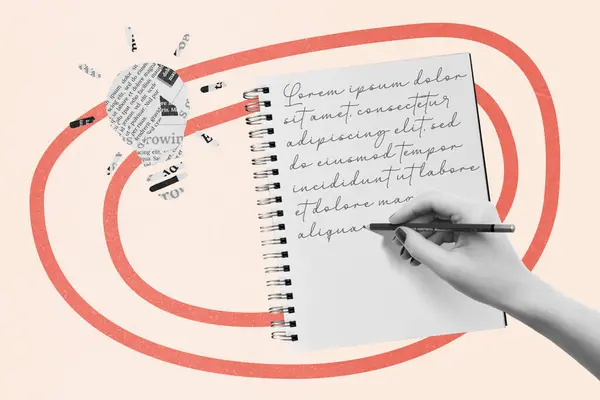 Lorem ipsum dolor
sit amet, consectetur
adipiscing elit, sed
do eiusmod tempor
incididunt ut labore
et dolore mag
aliqua